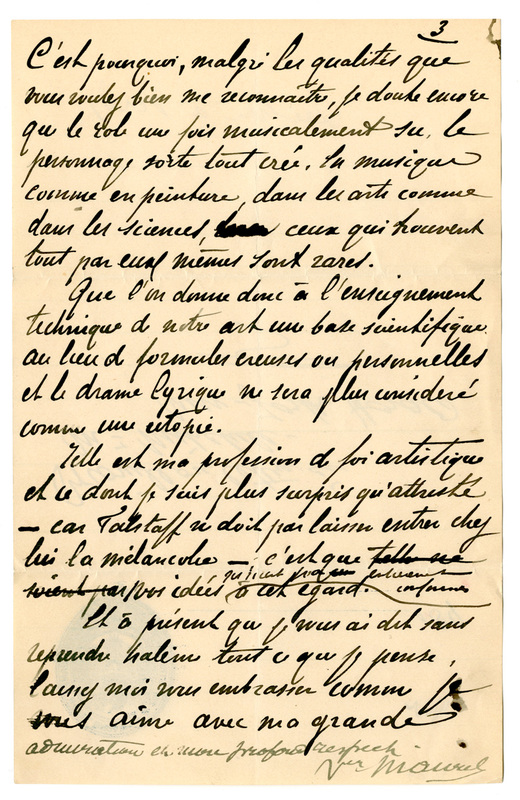 3
C'est pourquoi, malgré les qualités que
vous voulez bien me reconnaître, je doute encore
que le rôle une fois musicalement su, le
personnage sorte tout créé. En musique
comme en peinture, dans les arts comme
dans les sciences, ceux qui trouvent
tout par eux mêmes sont rares.
Que l'on donne donc à l'enseignement
technique de notre art une base scientifique
au lieu de formules creuses ou personnelles
et le drame lyrique ne sera plus considéré
comme une utopie.
Telle est ma profession de foi artistique
et ce dont je suis plus surpris qu'attristé
— car Falstaff ne doit pas laisser entrer chez
lui la mélancolie — c'est que telle ne
soient pas vos idées à cet égard.
conformes
Et à présent que je vous ai dit sans
reprendre haleine tout ce que je pense,
laissez moi vous embrasser comme je
vous aime avec ma grande
admiration et mon profond respect
Maurel